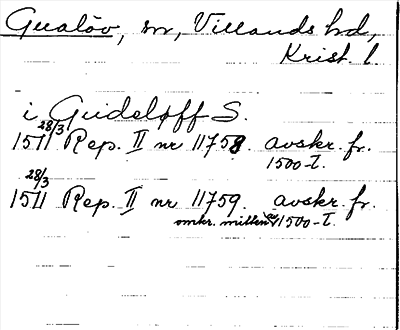 Gualöv, sn, Villands hd,
Krist. l.
i Gudeloff S.
28/3
1511 Rep. II nr 11758. avskr. fr.
1500-T.
28/3
1511 Rep. II nr 11759. avskr. fr.
omkr. mitten av 1500-T.